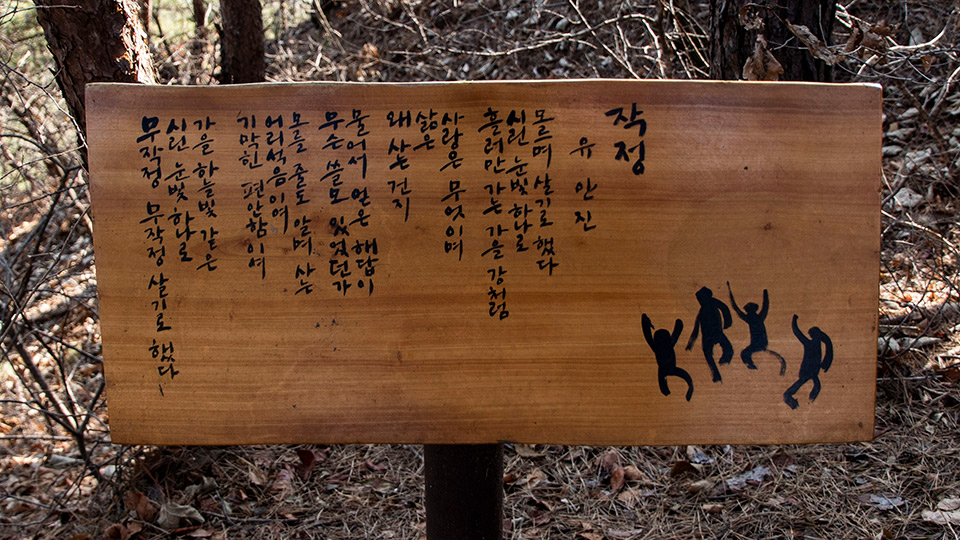 작정
유안진
모르며 살기로 했다
시린 눈빛 하나로
흘러만 가는 가을 강처럼
사랑은 무엇이며
삶은
왜 사는 건지
물어서 얻은 해답이
무슨 쓸모 있었던가
모를 줄도 알며 사는
어리석음이여
기막힌 편안함이여
가을 하늘빛 같은
시린 눈빛 하나로
무작정 무작정 살기로 했다